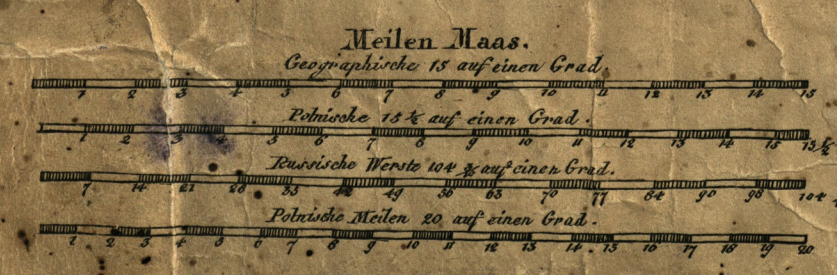 Meilen Maas.
Geographische 15 auf einen Grad.
1 2 3 4 5 6 7 8 9 10 11 12 13 14 15
Polnische 15 ½ auf einen Grad.
1 2 3 4 5 6 7 8 9 10 11 12 13 14 15 15 ½
Russische Werste 104 auf einen Grad.
7 14 21 28 35 42 49 56 63 70 77 84 90 98 104
Polnische Meilen 20 auf einen Grad.
1 2 3 4 5 6 7 8 9 10 11 12 13 14 15 16 17 18 19 20